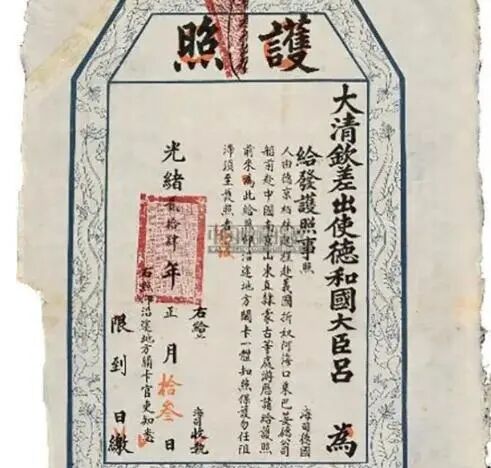 護照
大清欽差出使德和國大臣呂 為
給發護照事照 海司德國
人由德京柏林起程赴義國折奴河海口乘巴晏總公司
船前赴中國南京山東直隸蒙古等處游歷請給護照
前來為此給照仰沿途地方關卡一體知照保護勿任阻
滯須至護照者
右給 海司收執
光緒貳拾肆年正月拾叁日
右照仰沿途地方關卡官吏知悉
限到 日繳